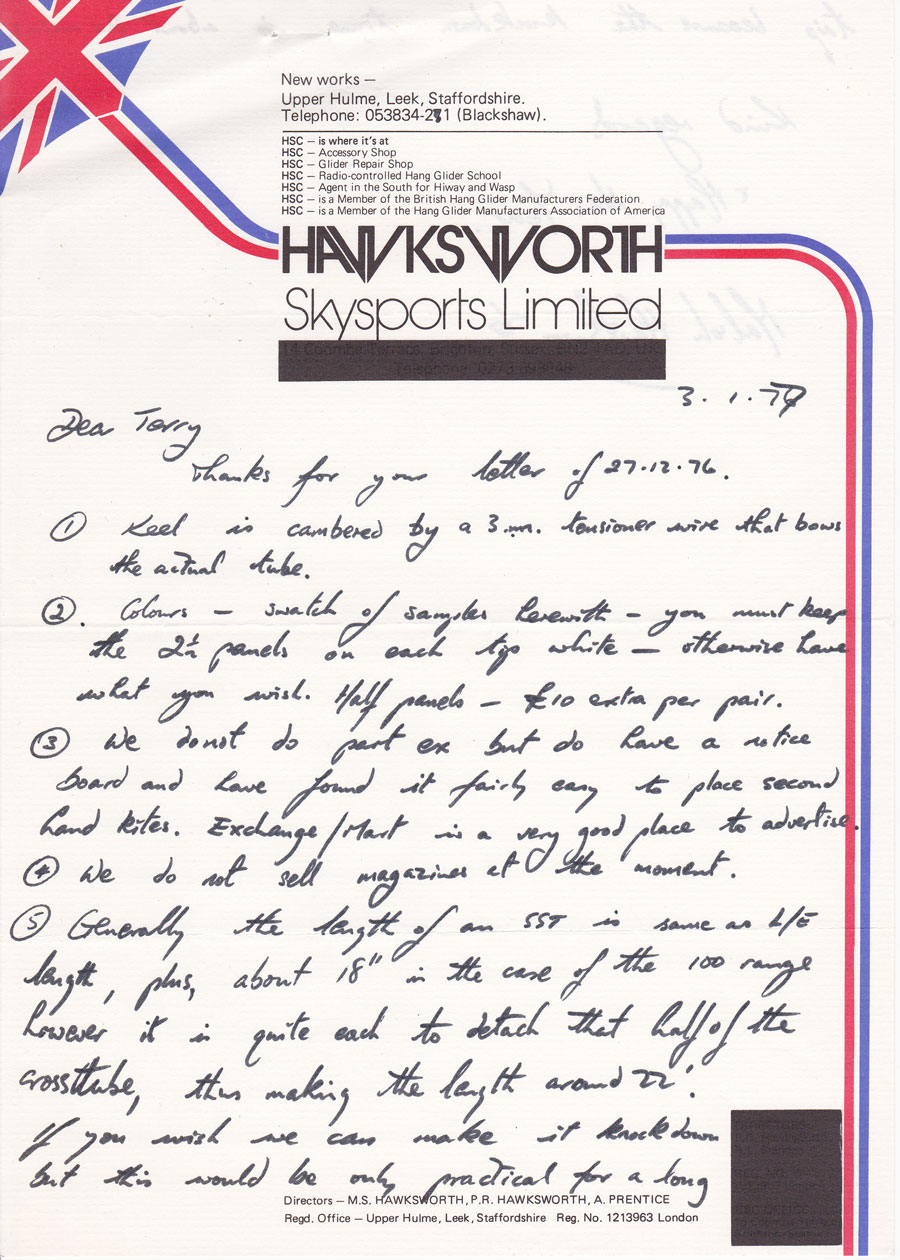 New works —
Upper Hulme, Leek, Staffordshire.
Telephone: 053834-271 (Blackshaw).
HSC — is where it's at
HSC — Accessory Shop
HSC — Glider Repair Shop
HSC — Radio-controlled Hang Glider School
HSC — Agent in the South for Hiway and Wasp
HSC — is a Member of the British Hang Glider Manufacturers Federation
HSC — is a Member of the Hang Glider Manufacturers Association of America
HAWKSWORTH
Skysports Limited
3.1.77
Dear Terry
Thanks for your letter of 27.12.76.
① Keel is cambered by a 3.m. tensioner wire that bows
the actual tube.
②. Colours — swatch of samples herewith — you must keep
the 2½ panels on each tip white — otherwise have
what you wish. Half panels — £10 extra per pair.
③ We donot do part ex but do have a notice
board and have found it fairly easy to place second
hand kites. Exchange/Mart is a very good place to advertise.
④ We do not sell magazines at the moment.
⑤ Generally the length of an SST is same as L/E
length, plus, about 18" in the case of the 100 range
however it is quite each to detach that half of the
crosstube, thus making the length around 22'.
If you wish we can make it knockdown
but this would be only practical for a long
Directors — M.S. HAWKSWORTH, P.R. HAWKSWORTH, A. PRENTICE
Regd. Office — Upper Hulme, Leek, Staffordshire Reg. No. 1213963 London